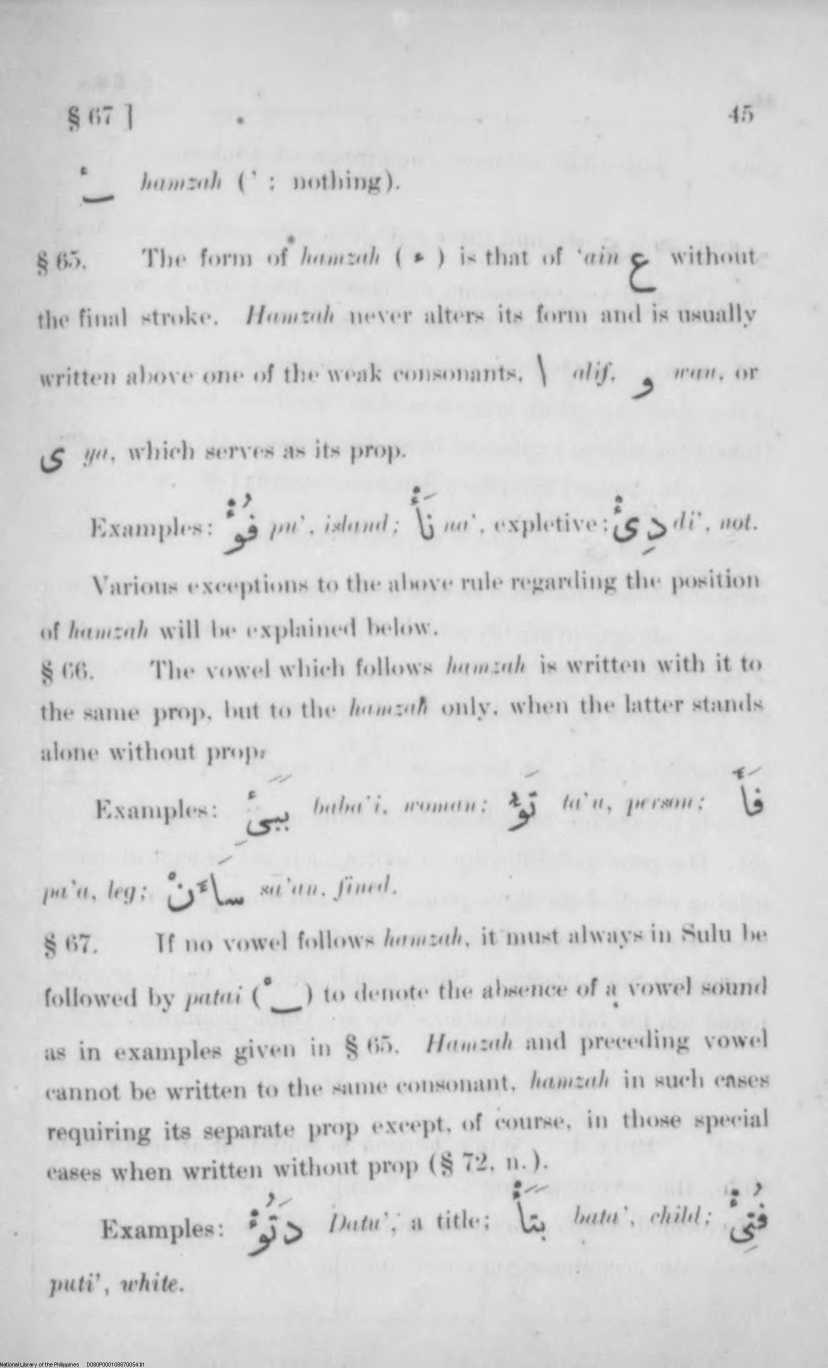 § 67 ]
45
ـْٔ hamzah (’ : nothing).
§ 65. The form of hamzah ( ء ) is that of ‘ain ع without
the final stroke. Hamzah never alters its form and is usually
written above one of the weak consonants, ا alif, و wau, or
ى ya, which serves as its prop.
Examples: فُؤْ pu’, island; نَأْ na’, expletive; دِئْ di’, not.
Various exceptions to the above rule regarding the position
of hamzah will be explained below.
§ 66. The vowel which follows hamzah is written with it to
the same prop, but to the hamzah only, when the latter stands
alone without prop.
Examples: بَبَئِ baba’i, woman; تَؤُ ta’u, person; فَأَ
pa’a, leg; ساَءَنْ sa’an, fined.
§ 67. If no vowel follows hamzah, it must always in Sulu be
followed by patai (ـْ) to denote the absence of a vowel sound
as in examples given in § 65. Hamzah and preceding vowel
cannot be written to the same consonant, hamzah in such cases
requiring its separate prop except, of course, in those special
cases when written without prop (§ 72, n.).
Examples: دَتُؤْ Datu’, a title; بَتَأْ bata’, child; فُتِئْ
puti’, white.
National Library of the Philippines